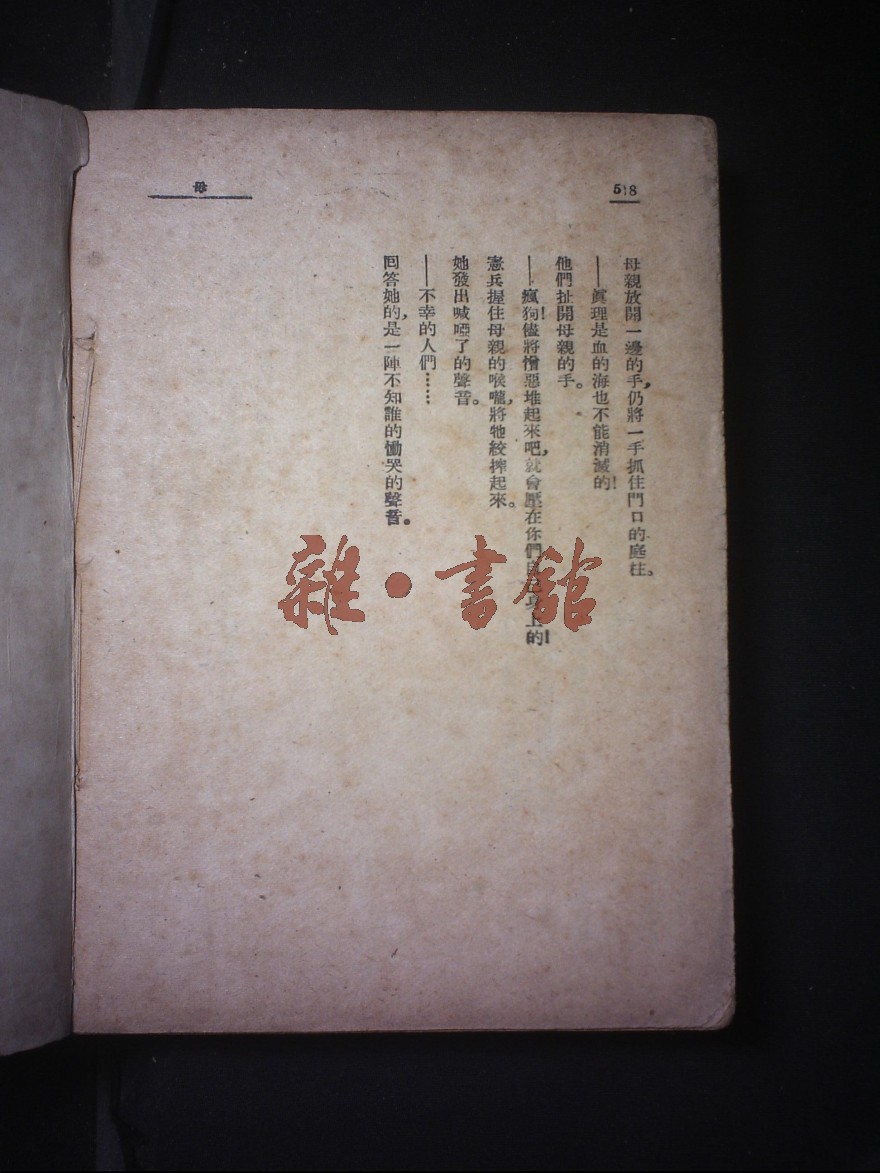 母
518
母親放開一邊的手，仍將一手抓住門口的庭柱。
——眞理是血的海也不能消滅的！
他們扯開母親的手。
——瘋狗！儘將憎惡堆起來吧，就會壓在你們自己身上的！
憲兵握住母親的喉嚨，將牠絞摔起來。
她發出喊啞了的聲音。
——不幸的人們……
回答她的，是一陣不知誰的慟哭的聲音。
雜·書館